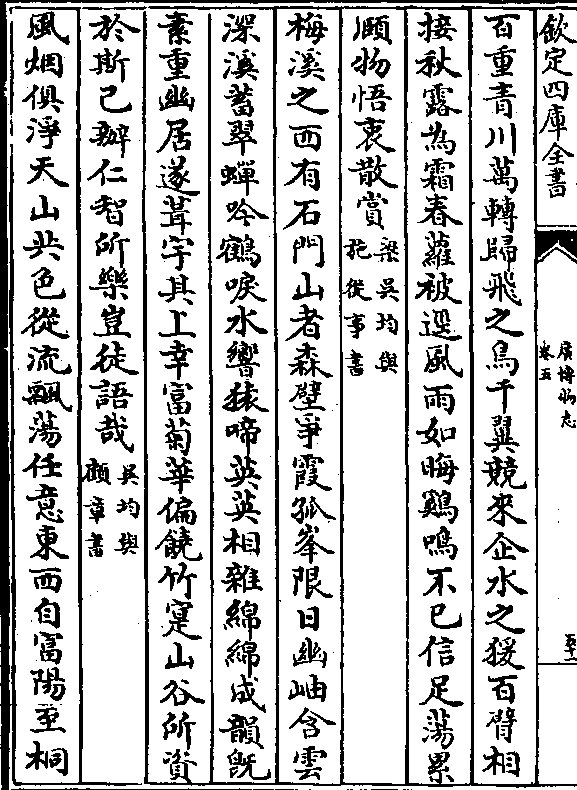 欽定四庫全書
廣博物志
卷五
百重青川萬轉歸飛之鳥千翼競來企水之猨百臂相
接秋露為霜春蘿被逕風雨如晦鷄鳴不已信足蕩累
頤物悟衷散賞
梁吳均與
施從事書
梅溪之西有石門山者森壁爭霞孤峯限日幽岫含雲
深溪蓄翠蟬吟鶴唳水響猿啼英英相雜綿綿成韻旣
素重幽居遂葺宇其上幸富菊華偏饒竹寔山谷所資
於斯已辦仁智所樂豈徒語哉
吳均與
顧章書
風烟俱淨天山共色從流飄蕩任意東西自富陽至桐